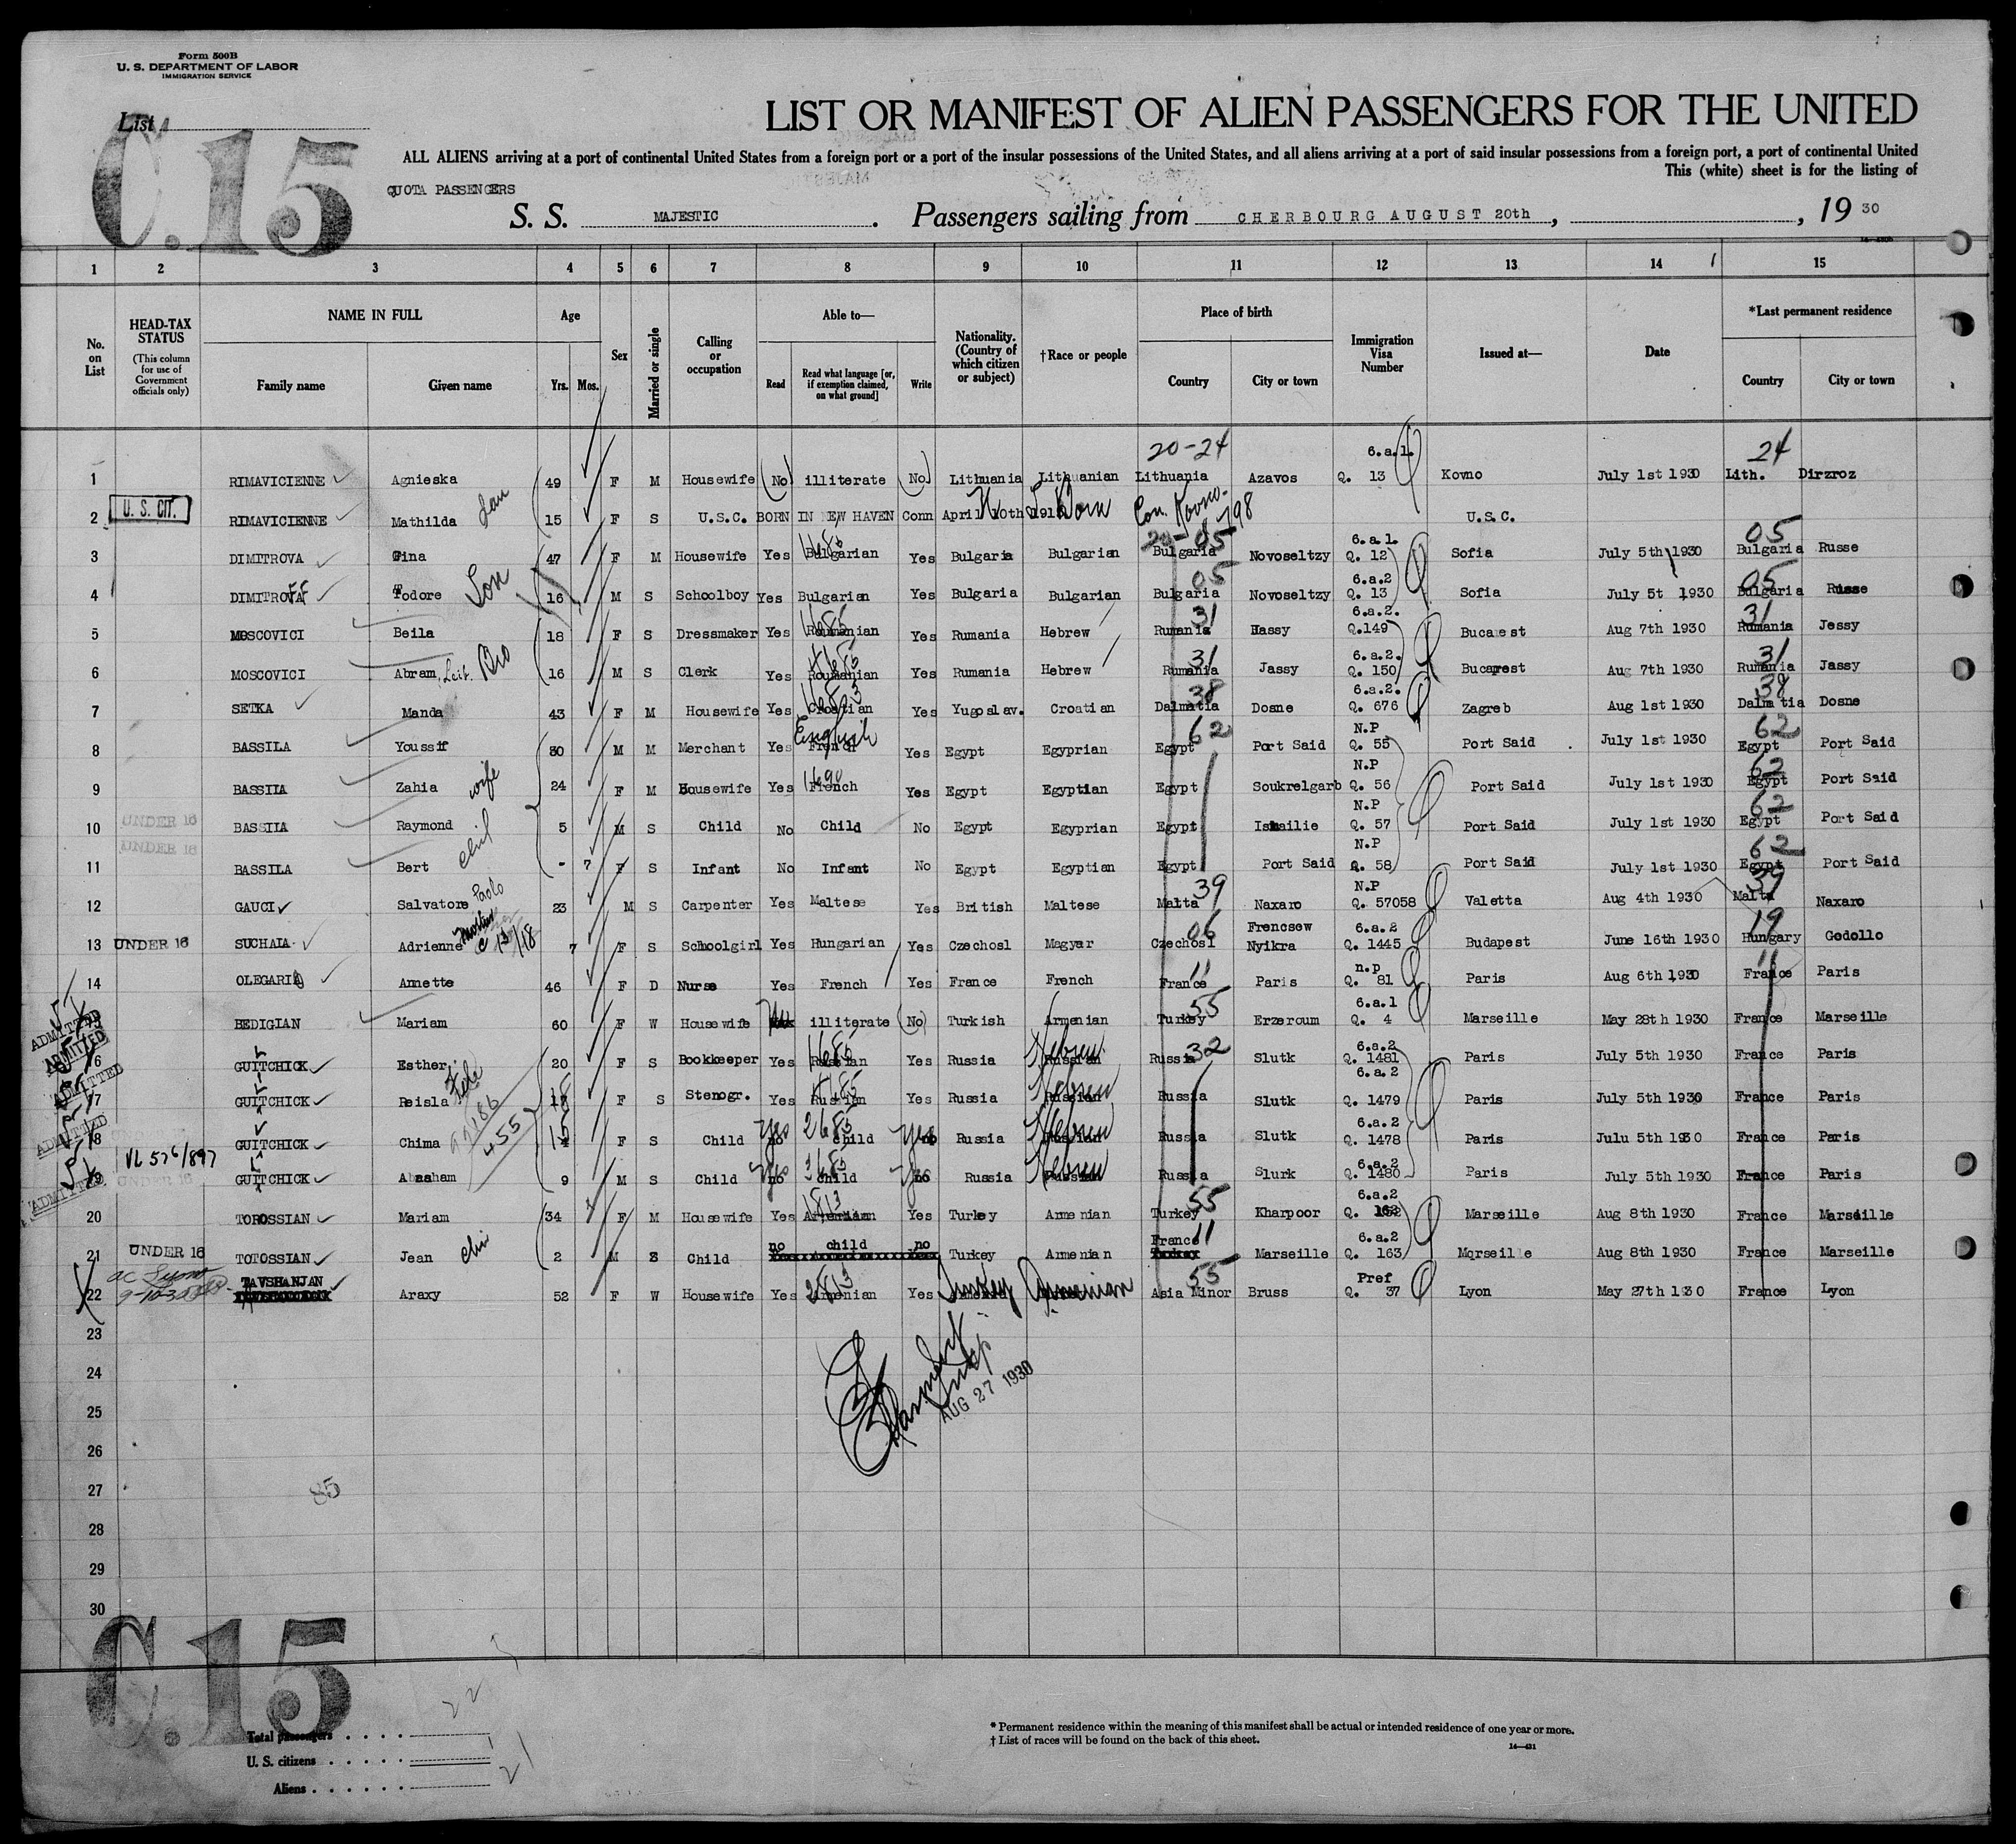 Form 500B
U. S. DEPARTMENT OF LABOR
IMMIGRATION SERVICE
List
C.15
LIST OR MANIFEST OF ALIEN PASSENGERS FOR THE UNITED
ALL ALIENS arriving at a port of continental United States from a foreign port or a port of the insular possessions of the United States, and all aliens arriving at a port of said insular possessions from a foreign port, a port of continental United
This (white) sheet is for the listing of
QUOTA PASSENGERS
S. S. MAJESTIC. Passengers sailing from CHERBOURG AUGUST 20th, , 19 30
1 2 3 4 5 6 7 8 9 10 11 12 13 14 15
No. on List
HEAD-TAX STATUS
(This column for use of Government officials only)
NAME IN FULL
Family name Given name
Age
Yrs. Mos.
Sex
Married or single
Calling or occupation
Able to—
Read
Read what language [or, if exemption claimed, on what ground]
Write
Nationality. (Country of which citizen or subject)
†Race or people
Place of birth
Country City or town
Immigration Visa Number
Issued at—
Date
*Last permanent residence
Country City or town
20-24 6.a.1. 24
1 RIMAVICIENNE Agnieska 49 F M Housewife (No) illiterate (No) Lithuania Lithuanian Lithuania Azavos Q. 13 Kovno July 1st 1930 Lith. Dirzroz
U. S. CIT.
2 RIMAVICIENNE Mathilda 15 F S U.S.C. BORN IN NEW HAVEN Conn April 10th U.S. Born Con. Kovno U.S.C.
05 6.a.1. 05
3 DIMITROVA Gina 47 F M Housewife Yes Bulgarian Yes Bulgaria Bulgarian Bulgaria Novoseltzy Q. 12 Sofia July 5th 1930 Bulgaria Russe
Son 05 6.a.2 05
4 DIMITROFF Todore 16 M S Schoolboy Yes Bulgarian Yes Bulgaria Bulgarian Bulgaria Novoseltzy Q. 13 Sofia July 5t 1930 Bulgaria Russe
31 6.a.2. 31
5 MOSCOVICI Beila 18 F S Dressmaker Yes Roumanian Yes Rumania Hebrew Rumania Hassy Q.149 Bucarest Aug 7th 1930 Rumania Jessy
Bro 31 6.a.2. 31
6 MOSCOVICI Abram, Leib. 16 M S Clerk Yes Roumanian Yes Rumania Hebrew Rumania Jassy Q. 150 Bucarest Aug 7th 1930 Rumania Jassy
38 6.a.2. 38
7 SETKA Manda 43 F M Housewife Yes Croatian Yes Yugoslav. Croatian Dalmatia Dosne Q. 676 Zagreb Aug 1st 1930 Dalmatia Dosne
English 62 N.P 62
8 BASSILA Youssif 30 M M Merchant Yes French Yes Egypt Egyprian Egypt Port Said Q. 55 Port Said July 1st 1930 Egypt Port Said
wife N.P 62
9 BASSIIA Zahia 24 F M Housewife Yes French Yes Egypt Egyptian Egypt Soukrelgarb Q. 56 Port Said July 1st 1930 Egypt Port Said
UNDER 16 N.P 62
10 BASSIIA Raymond 5 M S Child No Child No Egypt Egyprian Egypt Ismailie Q. 57 Port Said July 1st 1930 Egypt Port Said
UNDER 16 chil N.P 62
11 BASSILA Bert - 7 F S Infant No Infant No Egypt Egyptian Egypt Port Said Q. 58 Port Said July 1st 1930 Egypt Port Said
Paolo 39 N.P 39
12 GAUCI Salvatore 23 M S Carpenter Yes Maltese Yes British Maltese Malta Naxaro Q. 57058 Valetta Aug 4th 1930 Malta Naxaro
mother 06 Frencsew 6.a.2 19
13 UNDER 16 SUCHAIA Adrienne 7 F S Schoolgirl Yes Hungarian Yes Czechosl Magyar Czechosl Nyikra Q. 1445 Budapest June 16th 1930 Hungary Godollo
11 n.p 11
14 OLEGARIO Annette 46 F D Nurse Yes French Yes France French France Paris Q. 81 Paris Aug 6th 1930 France Paris
55 6.a.1
ADMITTED BEDIGIAN Mariam 60 F W Housewife No illiterate (No) Turkish Armenian Turkey Erzeroum Q. 4 Marseille May 28th 1930 France Marseille
ADMITTED Hebrew 32 6.a.2
GUITCHICK Esther 20 F S Bookkeeper Yes Russian Yes Russia Russian Russia Slutk Q. 1481 Paris July 5th 1930 France Paris
ADMITTED Hebrew 6.a.2
17 GUITCHICK Reisla 18 F S Stenogr. Yes Russian Yes Russia Russian Russia Slutk Q. 1479 Paris July 5th 1930 France Paris
ADMITTED 455 15 Yes Yes Hebrew 6.a.2
18 GUITCHICK Chima F S Child no child no Russia Russian Russia Slutk Q. 1478 Paris Julu 5th 1930 France Paris
UNDER 16 Yes Yes Hebrew 6.a.2
ADMITTED GUITCHICK Abraham 9 M S Child no child no Russia Russian Russia Slurk Q. 1480 Paris July 5th 1930 France Paris
55 6.a.2
20 TOROSSIAN Mariam 34 F M Housewife Yes Armenian Yes Turkey Armenian Turkey Kharpoor Q. 162 Marseille Aug 8th 1930 France Marseille
no child no France 11 6.a.2
21 UNDER 16 TOTOSSIAN Jean 2 M S Child Turkey Armenian Turkey Marseille Q. 163 Morseille Aug 8th 1930 France Marseille
TAVSHANJAN Turkey Armenian 55 Pref
22 Araxy 52 F W Housewife Yes Armenian Yes Asia Minor Bruss Q. 37 Lyon May 27th 1930 France Lyon
23
24
AUG 27 1930
25
26
27
85
28
29
30
C.15
Total passengers . . . . . 22
U. S. citizens . . . . . . 1
Aliens . . . . . . 21
* Permanent residence within the meaning of this manifest shall be actual or intended residence of one year or more.
† List of races will be found on the back of this sheet.